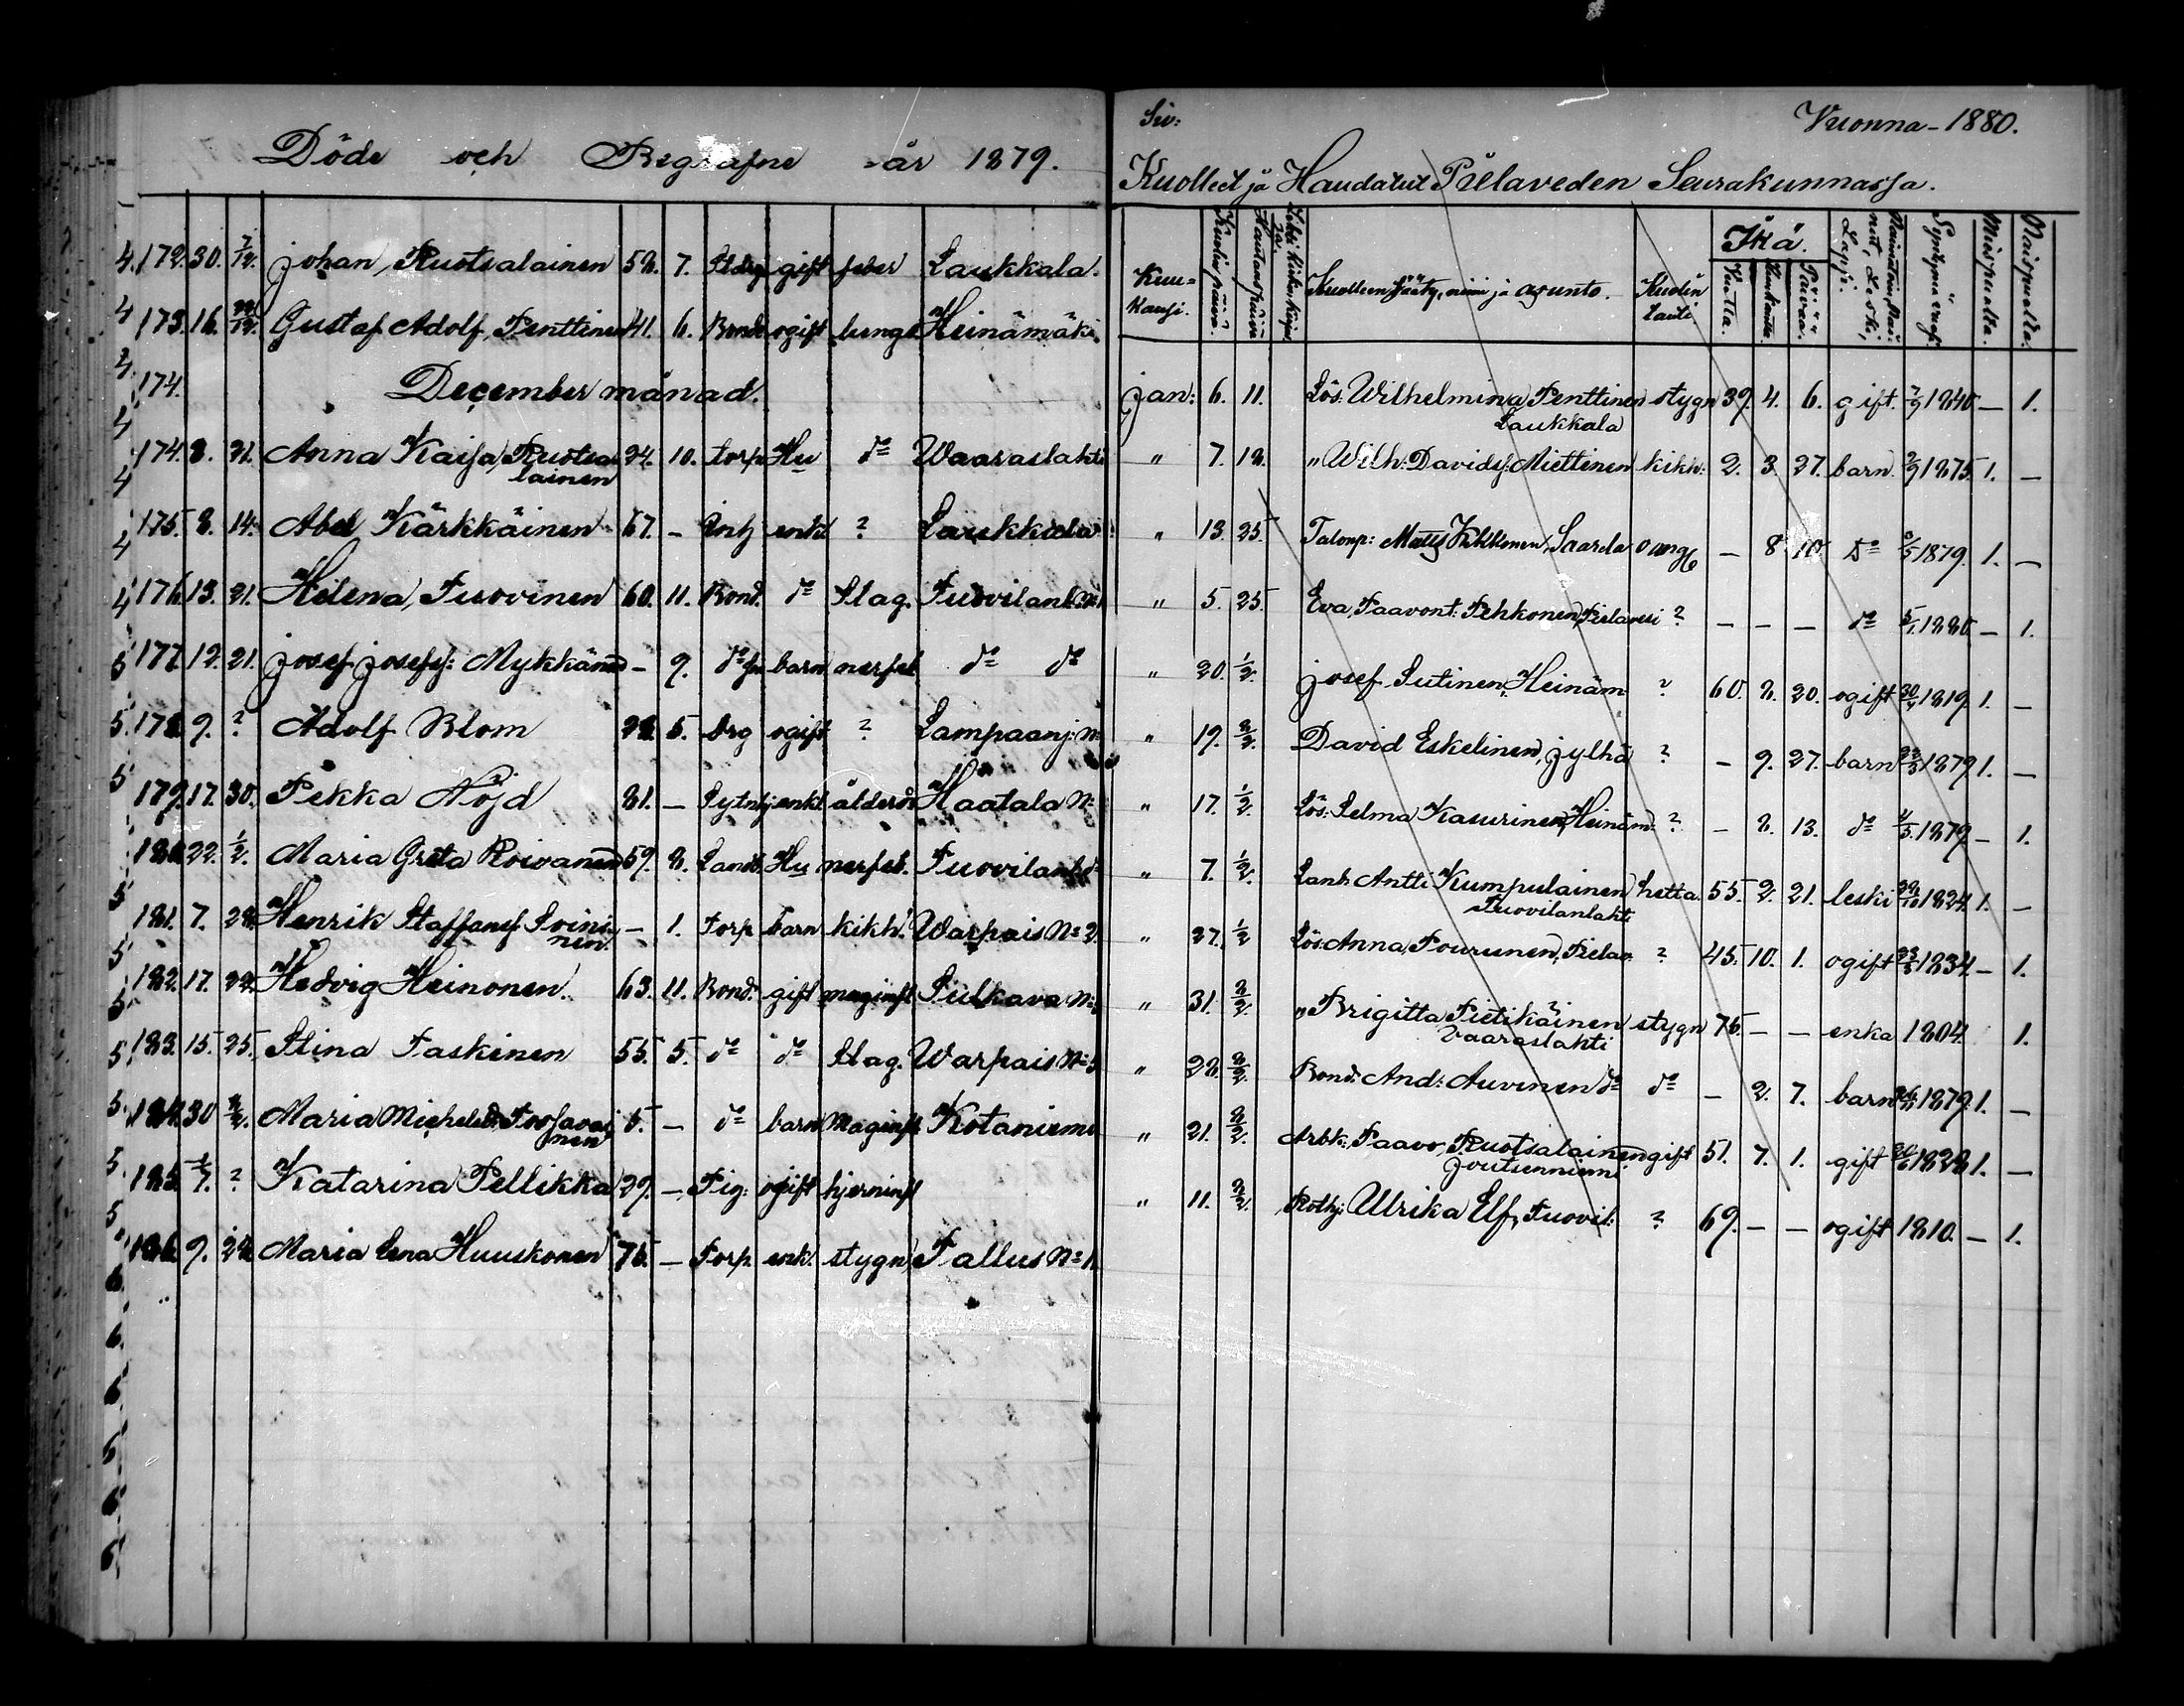 Döde och Begrafne år 1879.
172. 30. 7/12. Johan Ruotsalainen 58. 7. gift feber Laukkala.
173. 16. Gustaf Adolf Penttinen 41. 6. Bond ogift lungs Heinämäki
174. December månad.
174. 8. 21. Anna Kaisa Ruotsa 24. 10. torp Hu do Waaraslahti
lainen
175. 8. 14. Abel Kärkkäinen 67. - enkl ? Laukkala
176. 13. 21. Helena Tuovinen 60. 11. Bond. do Slag. Tuovilanl.
177. 12. 21. Josef Josefs: Mykkänen - 9. do barn nerfeb do do
178. 9. ? Adolf Blom 28. 5. drg ogift ? Lampaanj: No
179. 17. 30. Pekka Nöjd 81. - enkl ålderd Haatala No
180. 22. 1/2. Maria Greta Roivanen 59. 8. Hu nerfeb. Tuovilanl.
181. 7. 28. Henrik Staffans Soini - 1. Torp barn kikh. Warpais No 2.
nen.
182. 17. 28. Hedvig Heinonen. 63. 11. Bond. gift maginfl Sulkava No
183. 15. 25. Stina Taskinen 55. 5. do do Slag. Warpais No 5
184. 30 2/2. Maria Michelsd: Toosavai 5. - do barn Maginfl Kotaniemi
nen
185. 1/7. ? Katarina Pellikka 29. - Pig: ogift hjerninfl
186. 9. 28. Maria Lena Huuskonen 75. - Torp. enk. stygn Tallus No 1.
Siv: Vuonna - 1880.
Kuolleet ja Haudatut Pielaveden Seurakunnassa.
Kuukausi. Kuolinpäivä. Hautauspäivä Kuolleen sääty, nimi ja asunto. Kuolin tauti Ikä. Vuotta. Kuukautta. Päivää. Leski, Lapsi. Miespuolta. Naispuolta.
Jan: 6. 11. Lös. Wilhelmina Penttinen stygn 39. 4. 6. gift. 7/9 1840 - 1.
Laukkala
" 7. 18. " Wilh: Davids: Miettinen kikh: 2. 3. 27. barn. 1875. 1. -
" 13. 25. Talonp: Matts Kekkonen, Saarela - 8 10 Do 1879. 1. -
" 5. 25. Eva Paavont: Pehkonen, Pielavesi ? - - - do 5/1. 1880 - 1.
" 20. 1/2. Josef Sutinen, Heinäm ? 60. 8. 20. ogift 1819. 1. -
" 19. 2/2. David Eskelinen, Jylhä ? - 9. 27. barn 1879 1. -
" 17. 1/2. Lös. Selma Kasurinen, Heinäm: ? - 8. 13. do 1879. - 1.
" 7. 1/2. Lanb Antti Kumpulainen hetta. 55. 2. 21. leski 1824. 1. -
Tuovilanlahti
" 27. 1/2 Lös: Anna Pourunen, Pielav: ? 45. 10. 1. ogift 1834. - 1.
" 31. 2/2. " Brigitta Pietikäinen stygn 75. - - enka 1804. 1.
Vaaraslahti
" 28. 2/2. Bond. And: Auvinen do do - 2. 7. barn 1879. 1. -
" 21. 2/2. Arbk: Paavo Ruotsalainen gift 51. 7. 1. gift 1828 1. -
Joutsenniemi
" 11. 2/2. Rothj: Ulrika Elf, Tuovil: ? 69. - - ogift 1810. - 1.